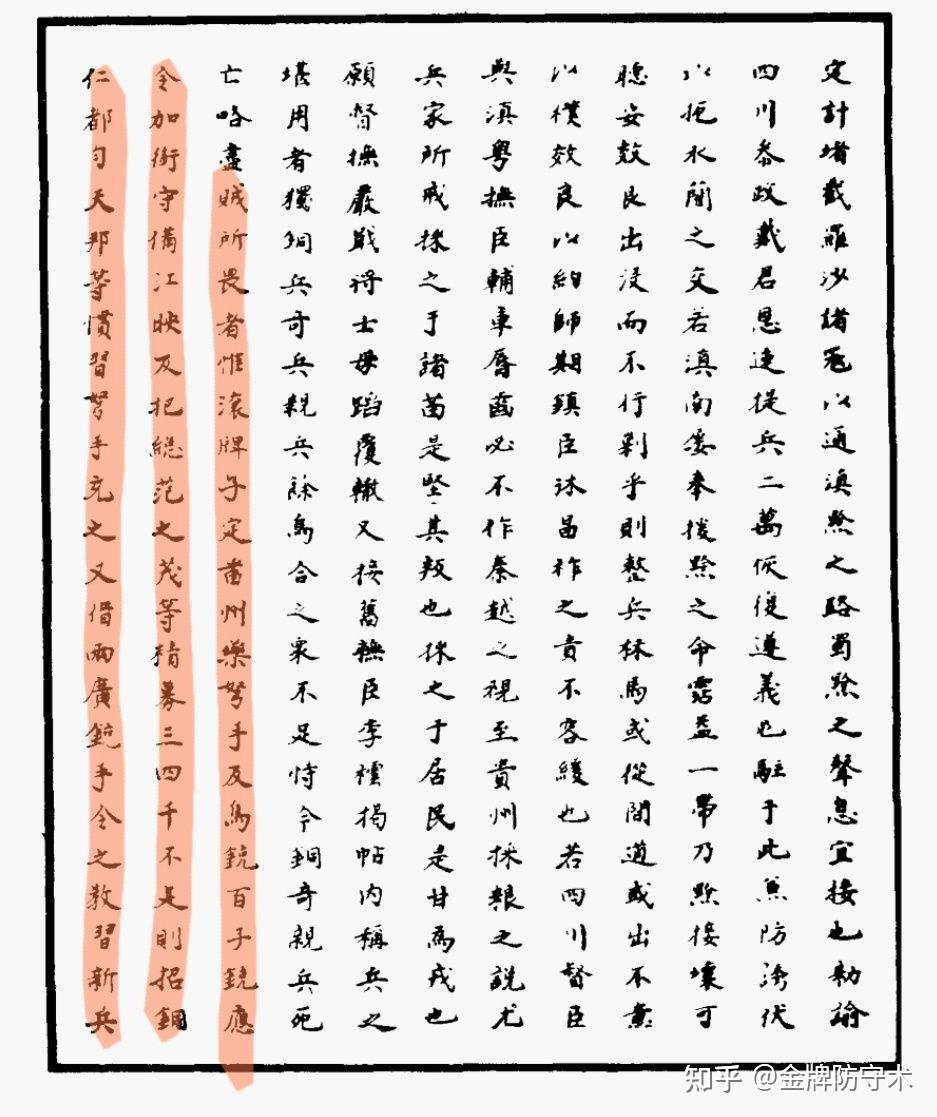 定計堵截羅沙諸冦以通滇黔之路蜀黔之聲息宜接也勅諭
四川叅政戴君恩速提兵二萬恢復遵義也駐于此兼防誘伏
以扼水藺之交若滇南委奉援黔之命霑益一帶乃黔接壤可
聰安效良出沒而不行剿乎則整兵秣馬或從間道或出不意
以樸效良以約師期鎮臣沐昌祚之責不容緩也若四川督臣
與滇粤撫臣輔車唇齒必不作秦越之視至貴州採糧之說尤
兵家所戒採之于諸苗是堅其叛也採之于居民是甘為戎也
願督撫嚴戢將士毋蹈覆轍又接舊撫臣李橒揭帖内稱兵之
堪用者獨銅兵奇兵親兵餘烏合之衆不足恃今銅奇親兵死
亡略盡賊所畏者惟滾牌子定畨州藥弩手及鳥銃百子銃應
令加銜守備江映及把総范之茂等精募三四千不足則招銅
仁都勻天邦等慣習弩手充之又借兩廣銃手令之教習新兵
知乎 @金牌防守术